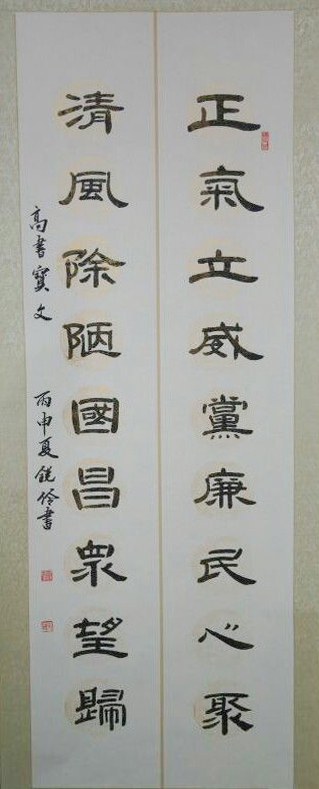 正氣立威黨廉民心聚
清風除陋國昌眾望歸
高書寶文
丙申夏銳伶書